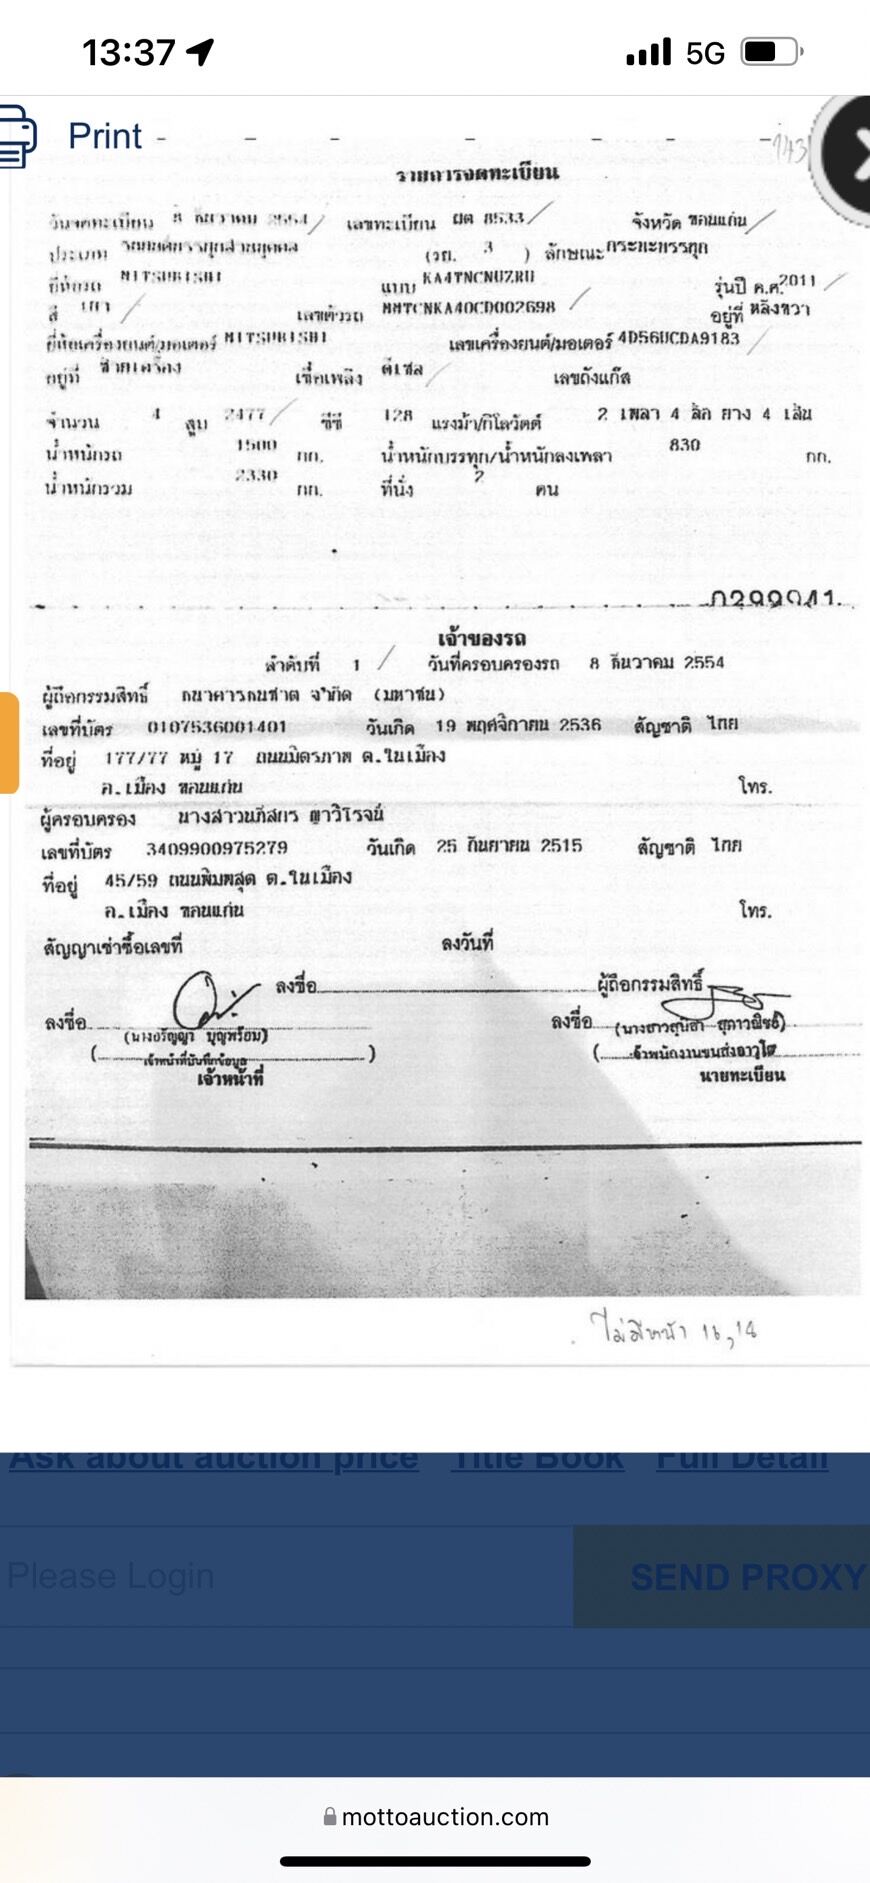 13:37
5G
Print
รายการจดทะเบียน
วันจดทะเบียน 8 ธันวาคม 2554 เลขทะเบียน ผต 8533 จังหวัด ขอนแก่น
ประเภท รถยนต์บรรทุกส่วนบุคคล (รย. 3 ) ลักษณะ กระบะบรรทุก
ยี่ห้อรถ MITSUBISHI แบบ KA4TNCNUZRU รุ่นปี ค.ศ. 2011
สี เทา เลขตัวรถ MMTCNKA40CD002698 อยู่ที่ หลังขวา
ยี่ห้อเครื่องยนต์/มอเตอร์ MITSUBISHI เลขเครื่องยนต์/มอเตอร์ 4D56UCDA9183
อยู่ที่ ซ้ายเครื่อง เชื้อเพลิง ดีเซล เลขถังแก๊ส
จำนวน 4 สูบ 2477 ซีซี 128 แรงม้า/กิโลวัตต์ 2 เพลา 4 ล้อ ยาง 4 เส้น
น้ำหนักรถ 1500 กก. น้ำหนักบรรทุก/น้ำหนักลงเพลา 830 กก.
น้ำหนักรวม 2330 กก. ที่นั่ง 2 คน
0299941
เจ้าของรถ
ลำดับที่ 1 วันที่ครอบครองรถ 8 ธันวาคม 2554
ผู้ถือกรรมสิทธิ์ ธนาคารธนชาต จำกัด (มหาชน)
เลขที่บัตร 0107536001401 วันเกิด 19 พฤศจิกายน 2536 สัญชาติ ไทย
ที่อยู่ 177/77 หมู่ 17 ถนนมิตรภาพ ต.ในเมือง
อ.เมือง ขอนแก่น โทร.
ผู้ครอบครอง นางสาวนภัสกร ญาวิโรจน์
เลขที่บัตร 3409900975279 วันเกิด 25 กันยายน 2515 สัญชาติ ไทย
ที่อยู่ 45/59 ถนนพิมพสุต ต.ในเมือง
อ.เมือง ขอนแก่น โทร.
สัญญาเช่าซื้อเลขที่ ลงวันที่
ลงชื่อ ผู้ถือกรรมสิทธิ์
ลงชื่อ ลงชื่อ
(นางอรัญญา บุญพร้อม) (นางสาวสุนิสา สุภาวณิชย์)
(เจ้าหน้าที่บันทึกข้อมูล) (เจ้าพนักงานขนส่งอาวุโส
เจ้าหน้าที่ นายทะเบียน
ไม่มีหน้า 16,18
Ask about auction price Title Book Full Detail
Please Login SEND PROXY
mottoauction.com